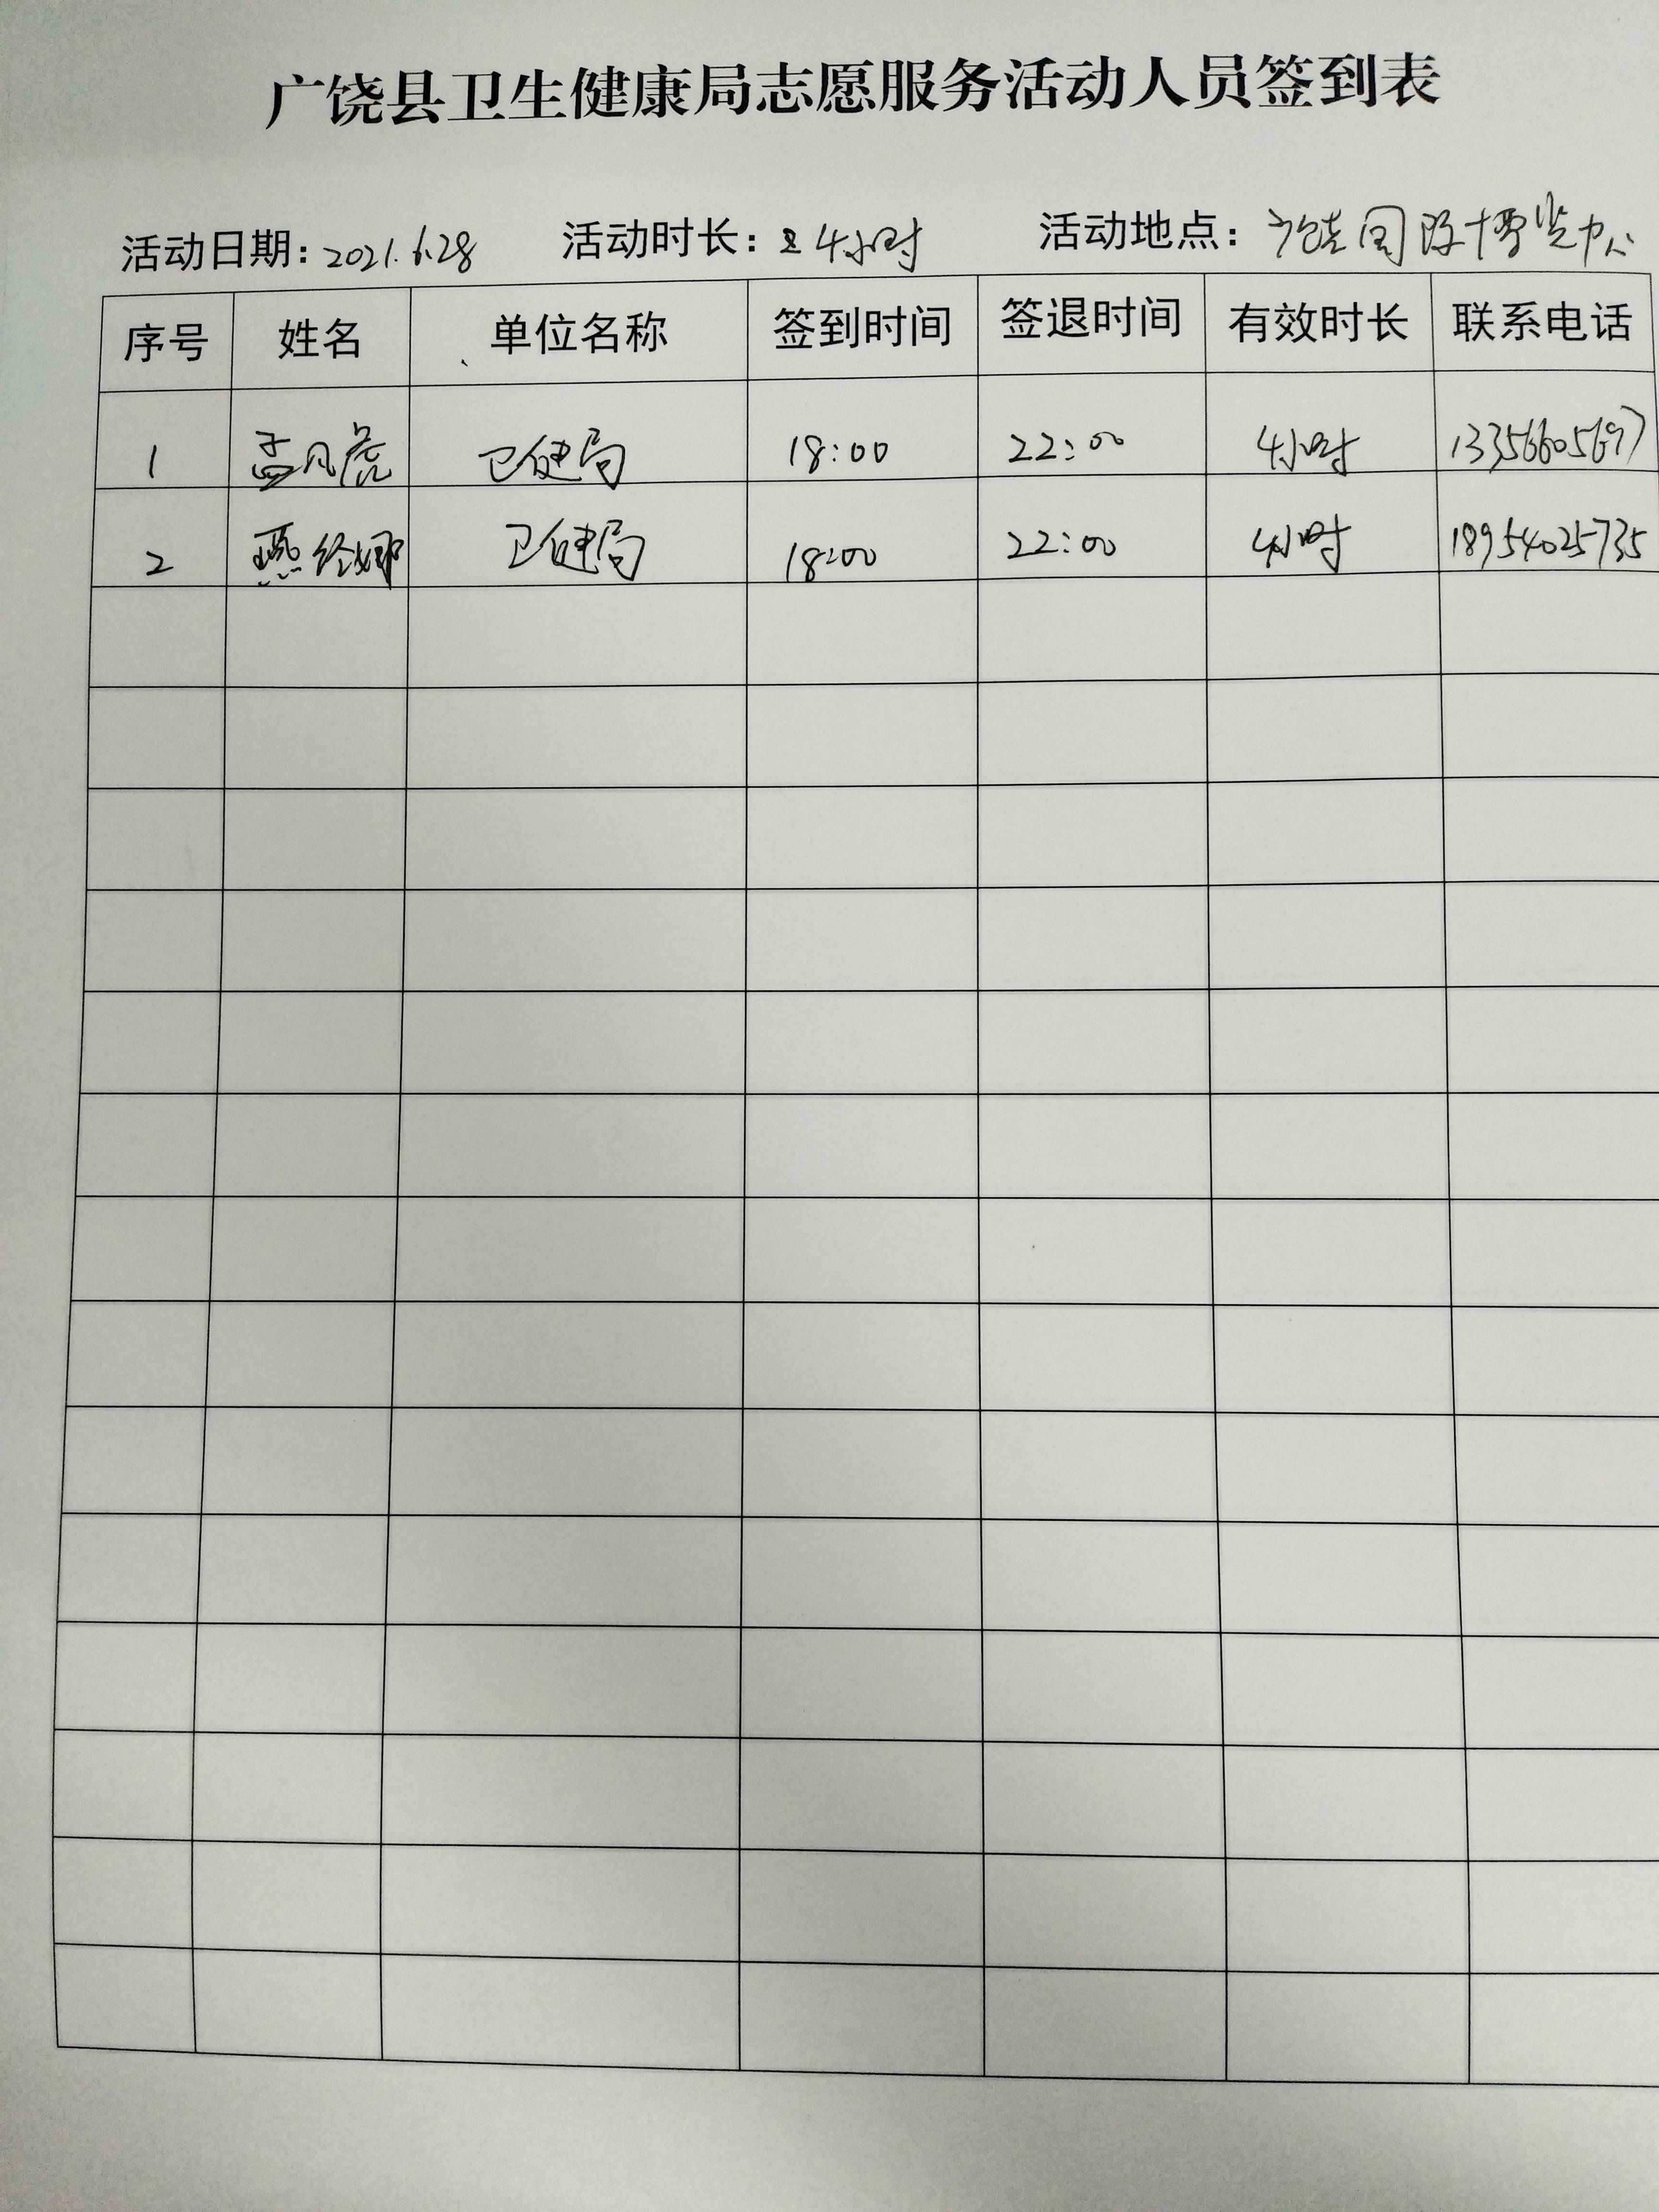 广饶县卫生健康局志愿服务活动人员签到表
活动日期：2021.6.28 活动时长：4小时 活动地点：广饶国际博览中心
序号 姓名 单位名称 签到时间 签退时间 有效时长 联系电话
1 孟凡虎 卫健局 18:00 22:00 4小时 13356605697
2 燕经娜 卫健局 18:00 22:00 4小时 18954025735